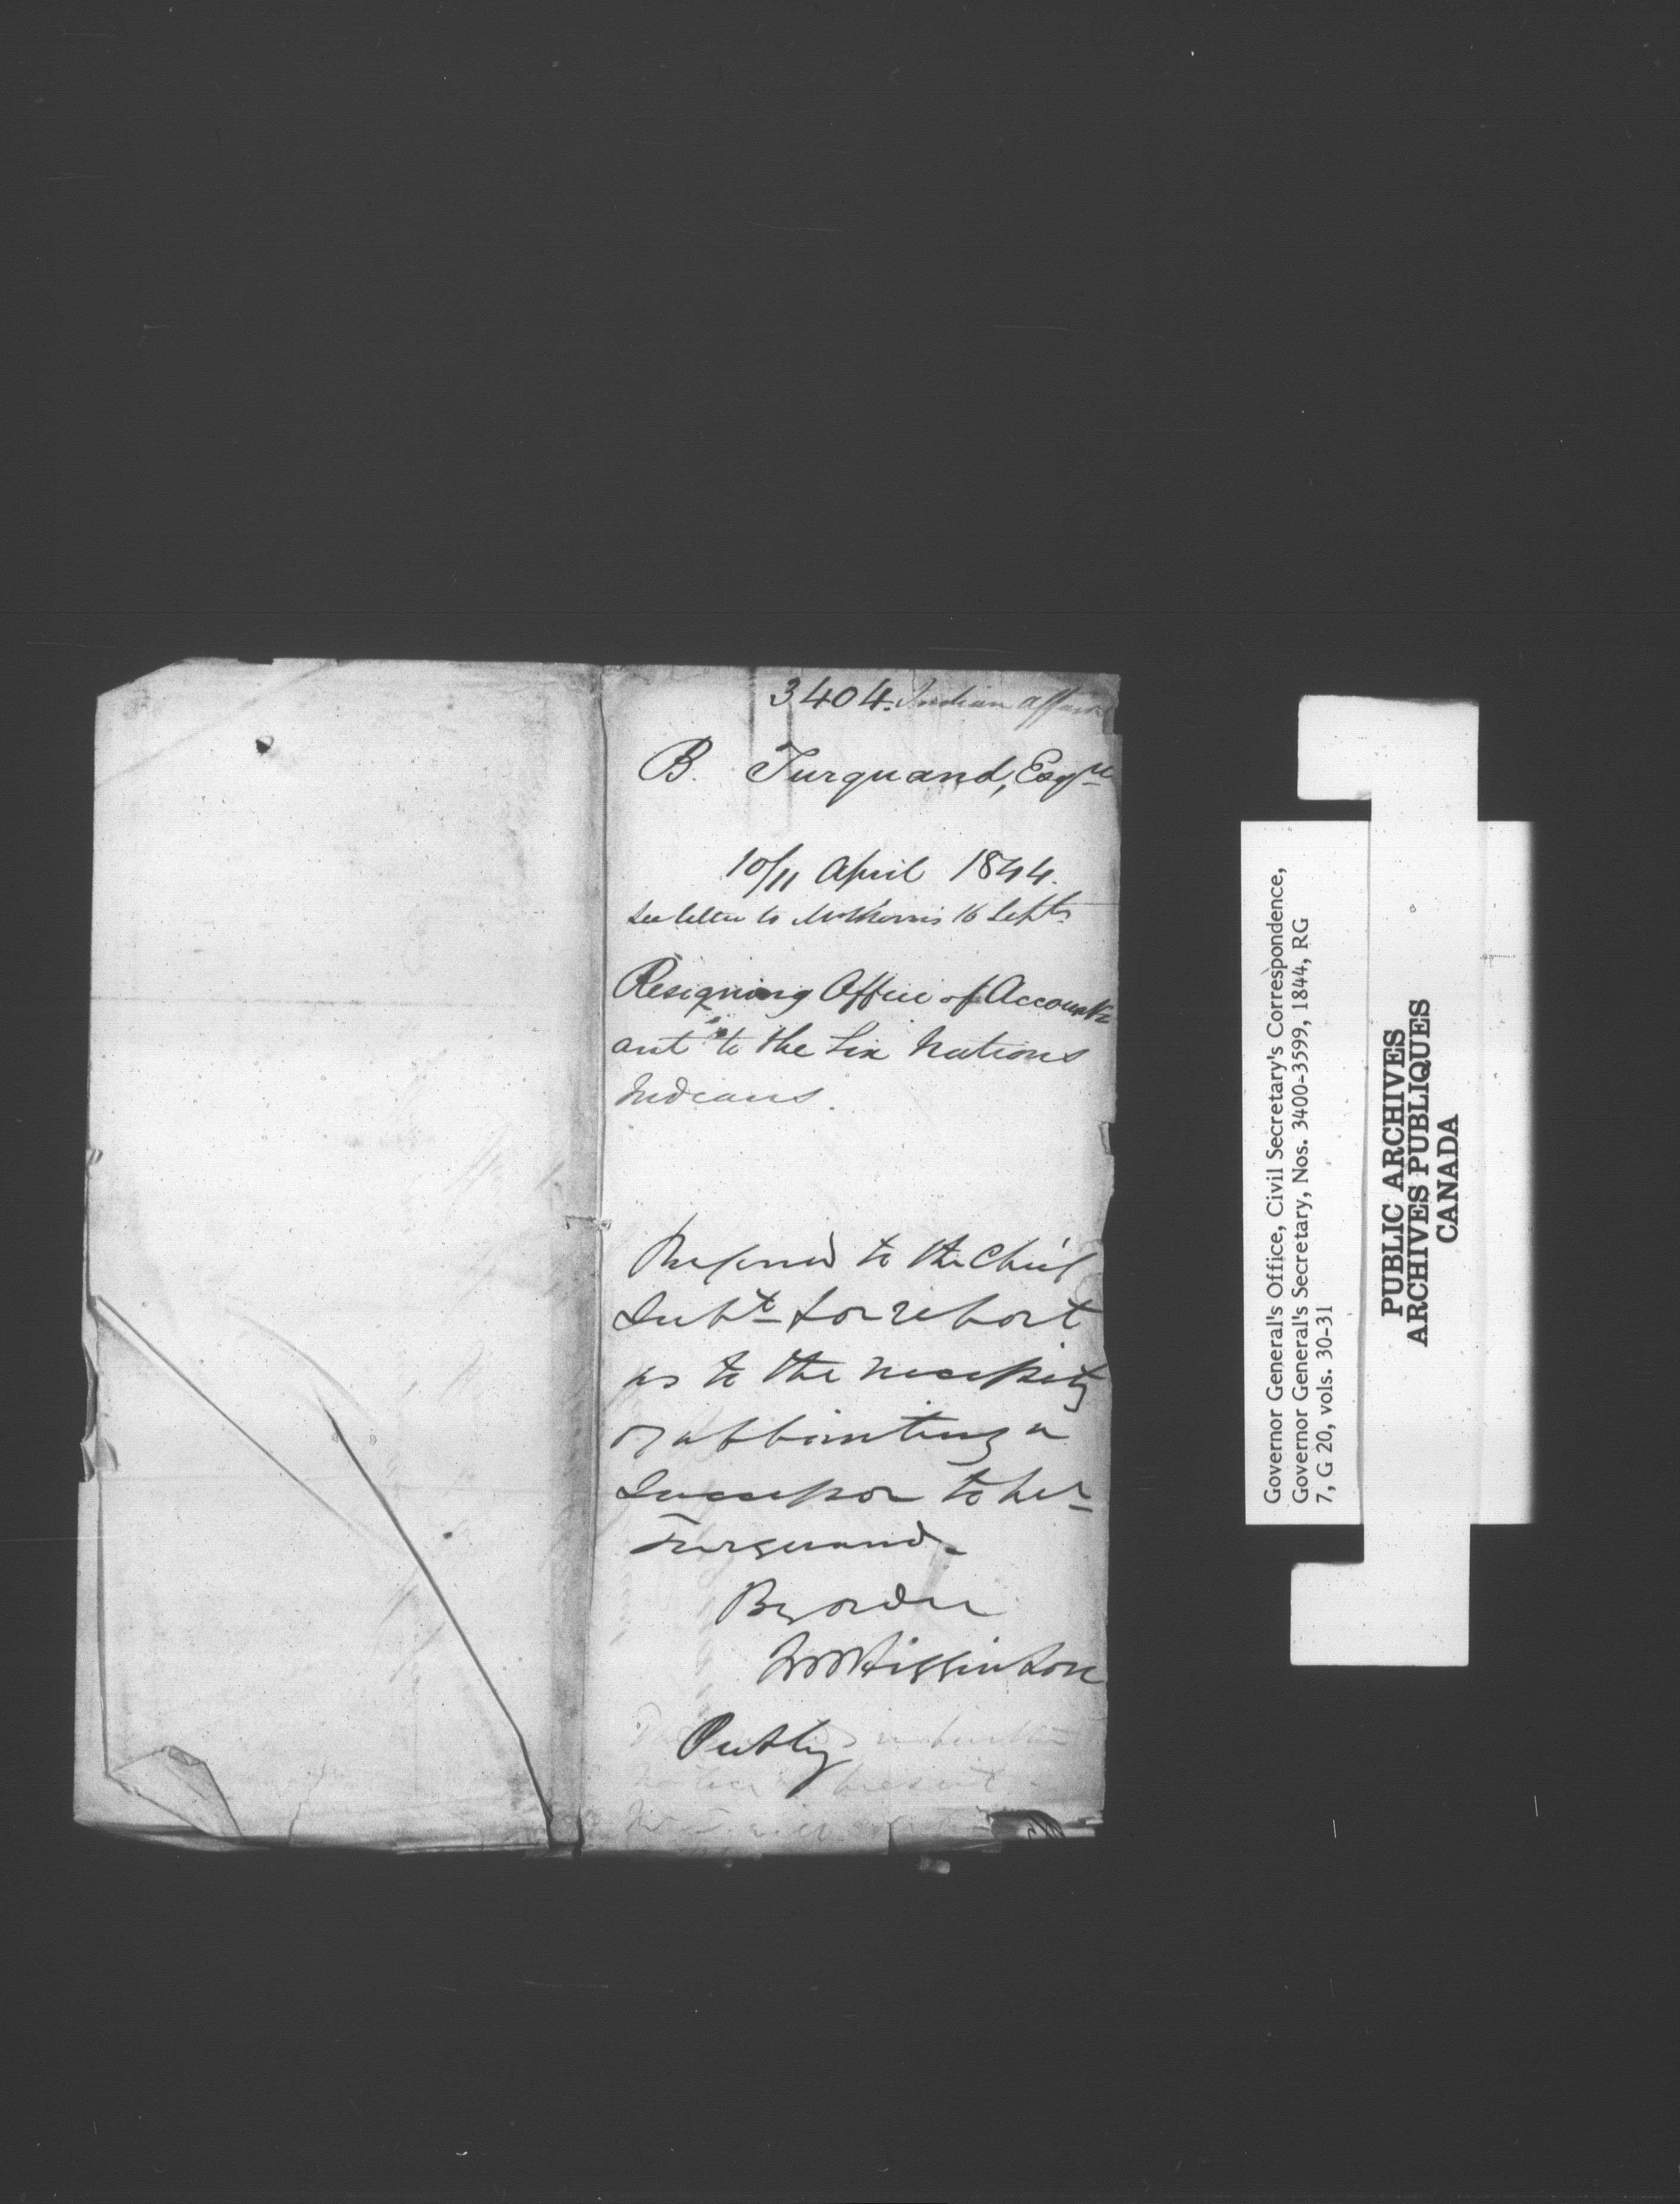 3404. Indian affairs
B. Turquand, Esqre
10/11 April 1844.
See letter to Mr Morris 16 Septr
Resigning Office of Account-
ant to the Six Nations
Indians.
Referred to the Chief
Supt for report
as to the necessity
of appointing a
Successor to Mr
Turquand.
By order
JM Higginson
Put by
present
Governor General's Office, Civil Secretary's Correspondence,
Governor General's Secretary, Nos. 3400-3599, 1844, RG
7, G 20, vols. 30-31
PUBLIC ARCHIVES
ARCHIVES PUBLIQUES
CANADA